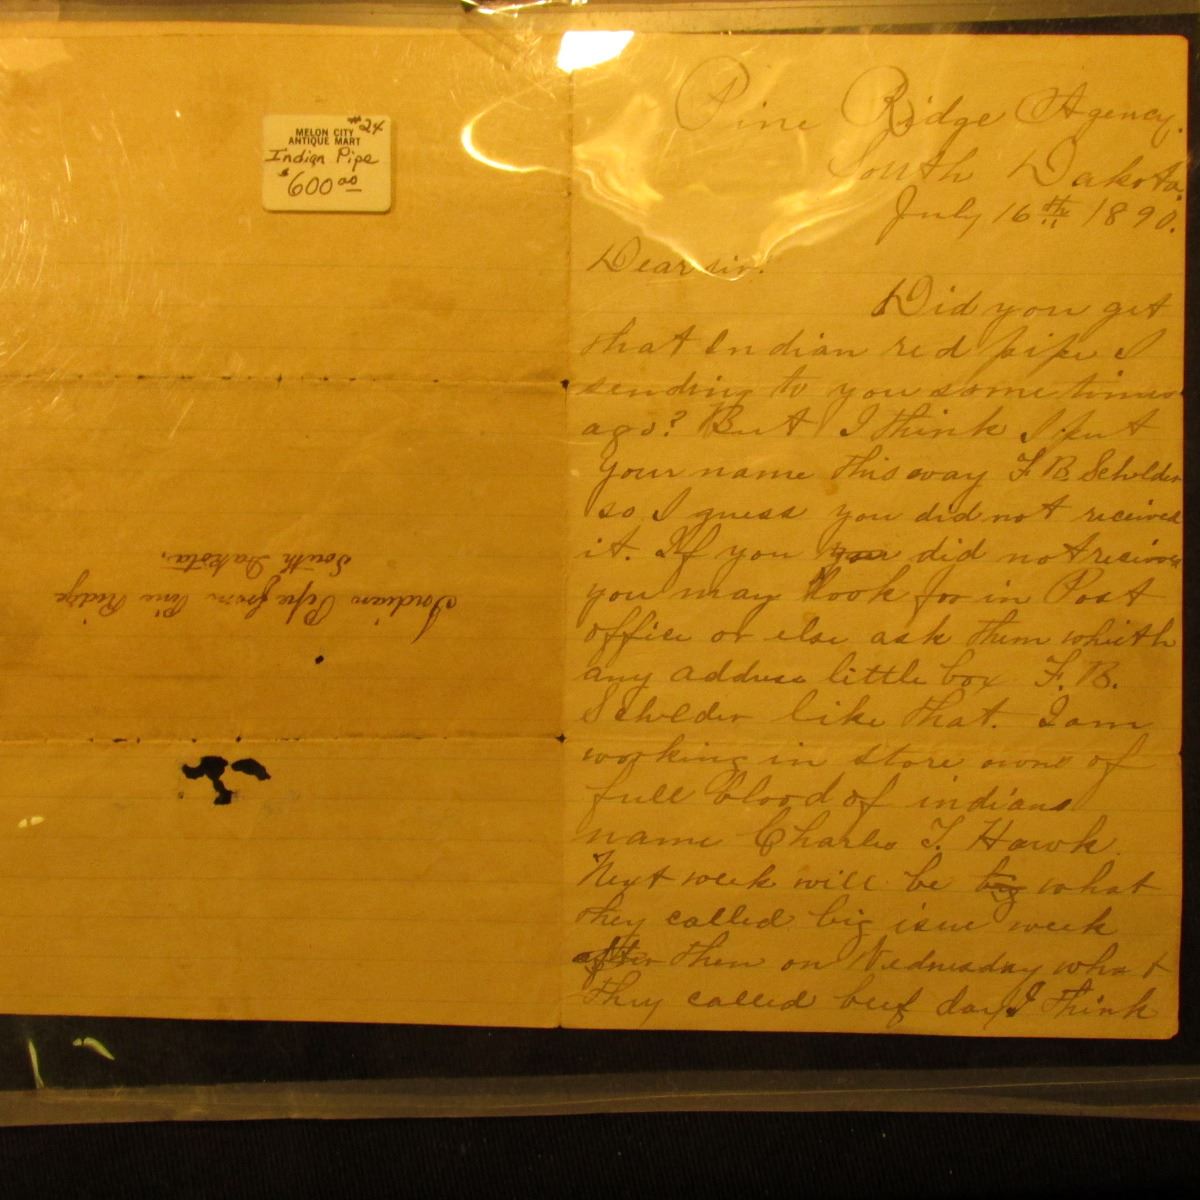 #24
MELON CITY
ANTIQUE MART
Indian Pipe
$600 00
Indian Pipe from Pine Ridge
South Dakota,
Pine Ridge Agency.
South Dakota.
July 16th 1890.
Dear sir:
Did you get
that Indian red pipe I
sending to you some times
ago? But I think I put
your name this way F. B. Schelder
so I guess you did not received
it. If you did not recieve
you may look for in Post
office or else ask them
any address little box F. B.
Schelder like that. I am
working in store owne of
full blood of indians
name Charles T. Hawk.
Next week will be big what
they called big isue week
after then on Wednesday what
they called beef day I think